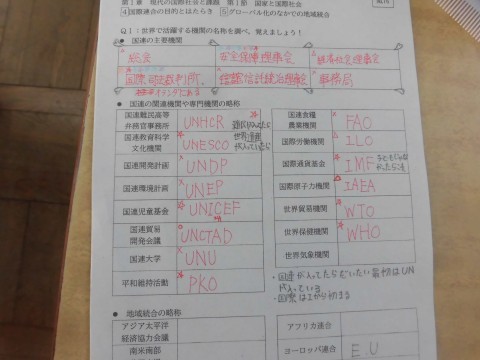 第1章 現代の国際社会と課題 第1節 国家と国際社会
4 国際連合の目的とはたらき 5 グローバル化のなかでの地域統合
Q1:世界で活躍する機関の名称を調べ、覚えましょう!
● 国連の主要機関
総会 安全保障理事会 経済社会理事会
国際司法裁判所 信託統治理事会 事務局
オランダにある
● 国連の関連機関や専門機関の略称
国連難民高等弁務官事務所 UNHCR
国連教育科学文化機関 UNESCO
国連開発計画 UNDP
国連環境計画 UNEP
国連児童基金 UNICEF
国連貿易開発会議 UNCTAD
国連大学 UNU
平和維持活動 PKO
国連食糧農業機関 FAO
国際労働機関 ILO
国際通貨基金 IMF
国際原子力機関 IAEA
世界貿易機関 WTO
世界保健機関 WHO
世界気象機関
・国連が入ってたらだいたい最初はUN
が入っている
・国際はIから始まる
● 地域統合の略称
アジア太平洋経済協力会議
南米南部
アフリカ連合
ヨーロッパ連合 E.U